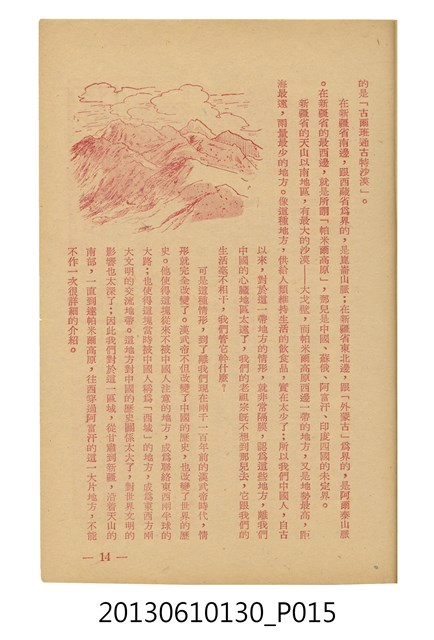 的是「古爾班通古特沙漠」。
在新疆省南邊，跟西藏省爲界的，是崑崙山脈；在新疆省東北邊，跟「外蒙古」爲界的，是阿爾泰山脈
。在新疆省的最西邊，就是所謂「帕米爾高原」，那兒是中國、蘇俄、阿富汗、印度四國的未定界。
新疆省的天山以南地區，有最大的沙漠——大戈壁，而帕米爾高原西邊一帶的地方，又是地勢最高，距
海最遠，雨量最少的地方。像這種地方，供給人類維持生活的飲食品，實在太少了；所以我們中國人，自古
以來，對於這一帶地方的情形，就非常隔膜，認爲這些地方，離我們
中國的心臟地區太遠了，我們的老祖宗旣不想到那兒去，它跟我們的
生活毫不相干，我們管它幹什麼？
可是這種情形，到了離我們現在兩千一百年前的漢武帝時代，情
形就完全改變了。漢武帝不但改變了中國的歷史，也改變了世界的歷
史。他使得這塊從來不被中國人注意的地方，成爲聯絡東西兩半球的
大路；也使得這塊當時被中國人稱爲「西域」的地方，成爲東西方兩
大文明的交流地帶。這地方對中國的歷史關係太大了，對世界文明的
影響也太深了；因此我們對於這一區域，從甘肅到新疆，沿着天山的
南部，一直到達帕米爾高原，往西穿過阿富汗的這一大片地方，不能
不作一次很詳細的介紹。
— 14 —
20130610130_P015